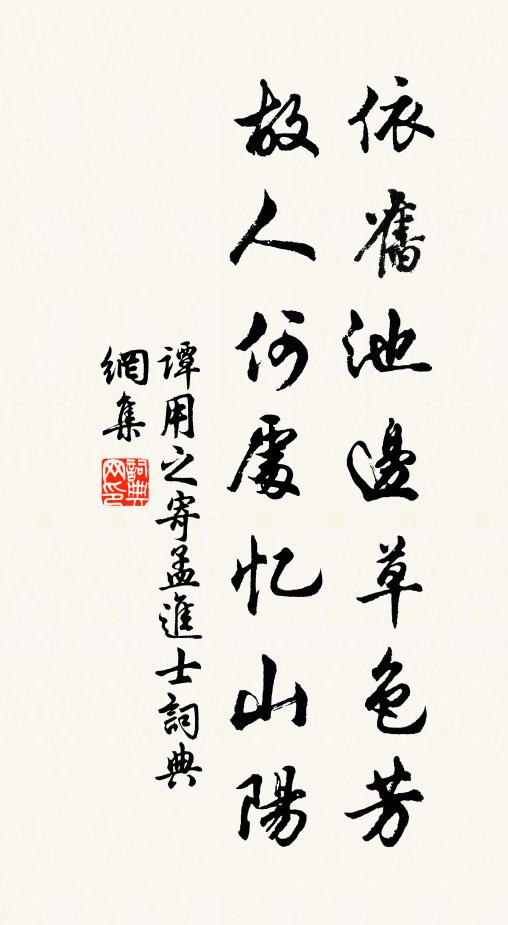 依舊池邊草色芳
故人何處忆山陽
谭用之寄孟進士詞典
網集
詞典网印